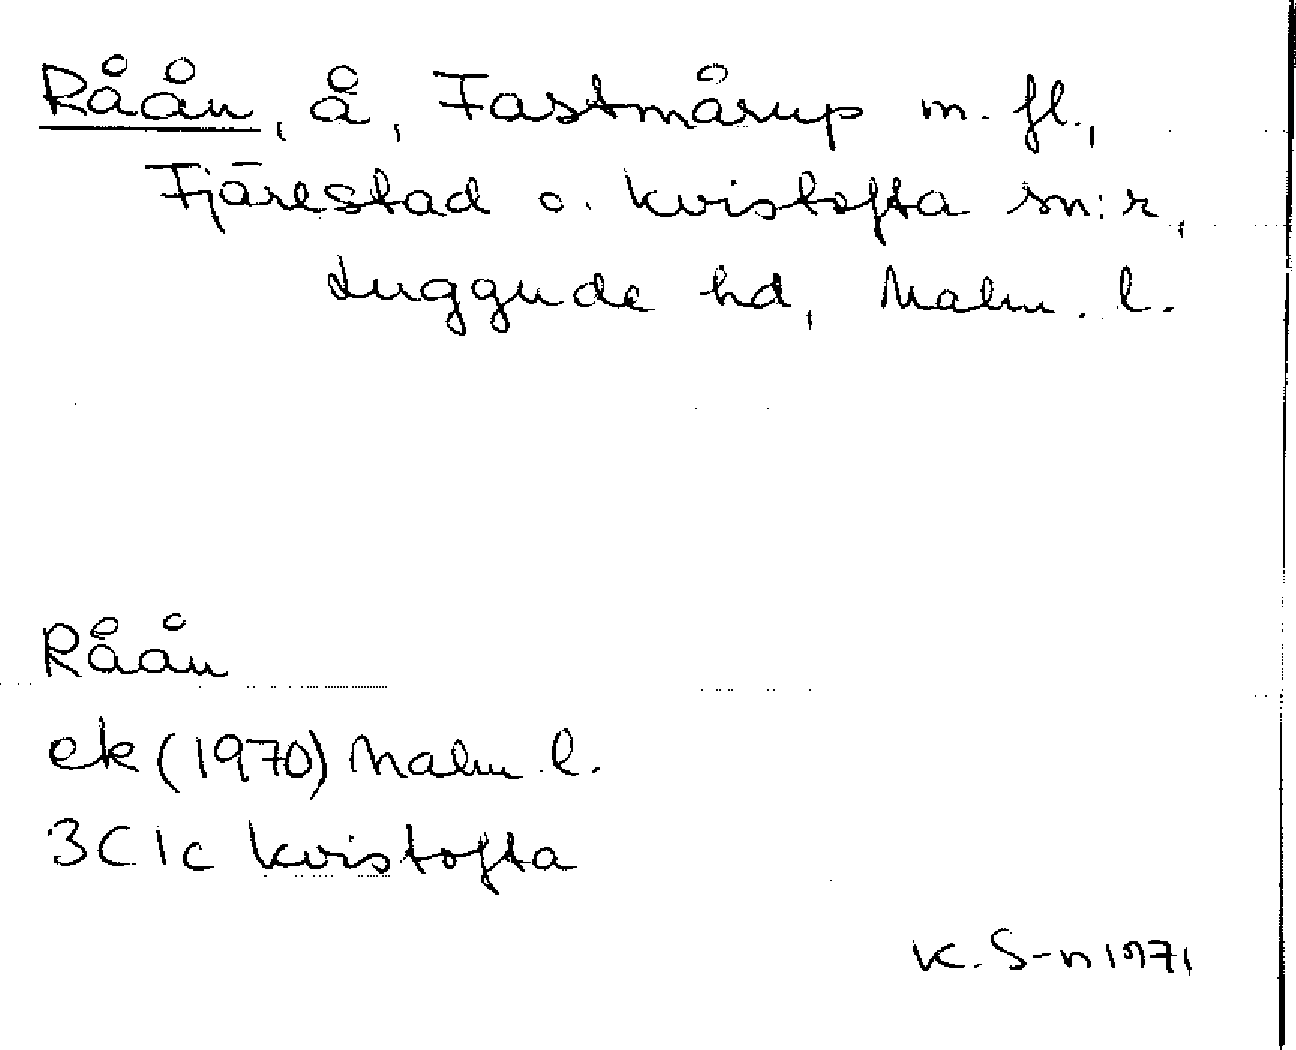 Råån, å, Fastmårup m. fl.,
Fjärestad o. Kvistofta sn:r,
Luggude hd, Malm. l.
Råån
ek (1970) Malm. l.
3C1c Kvistofta
K. S-n 1971